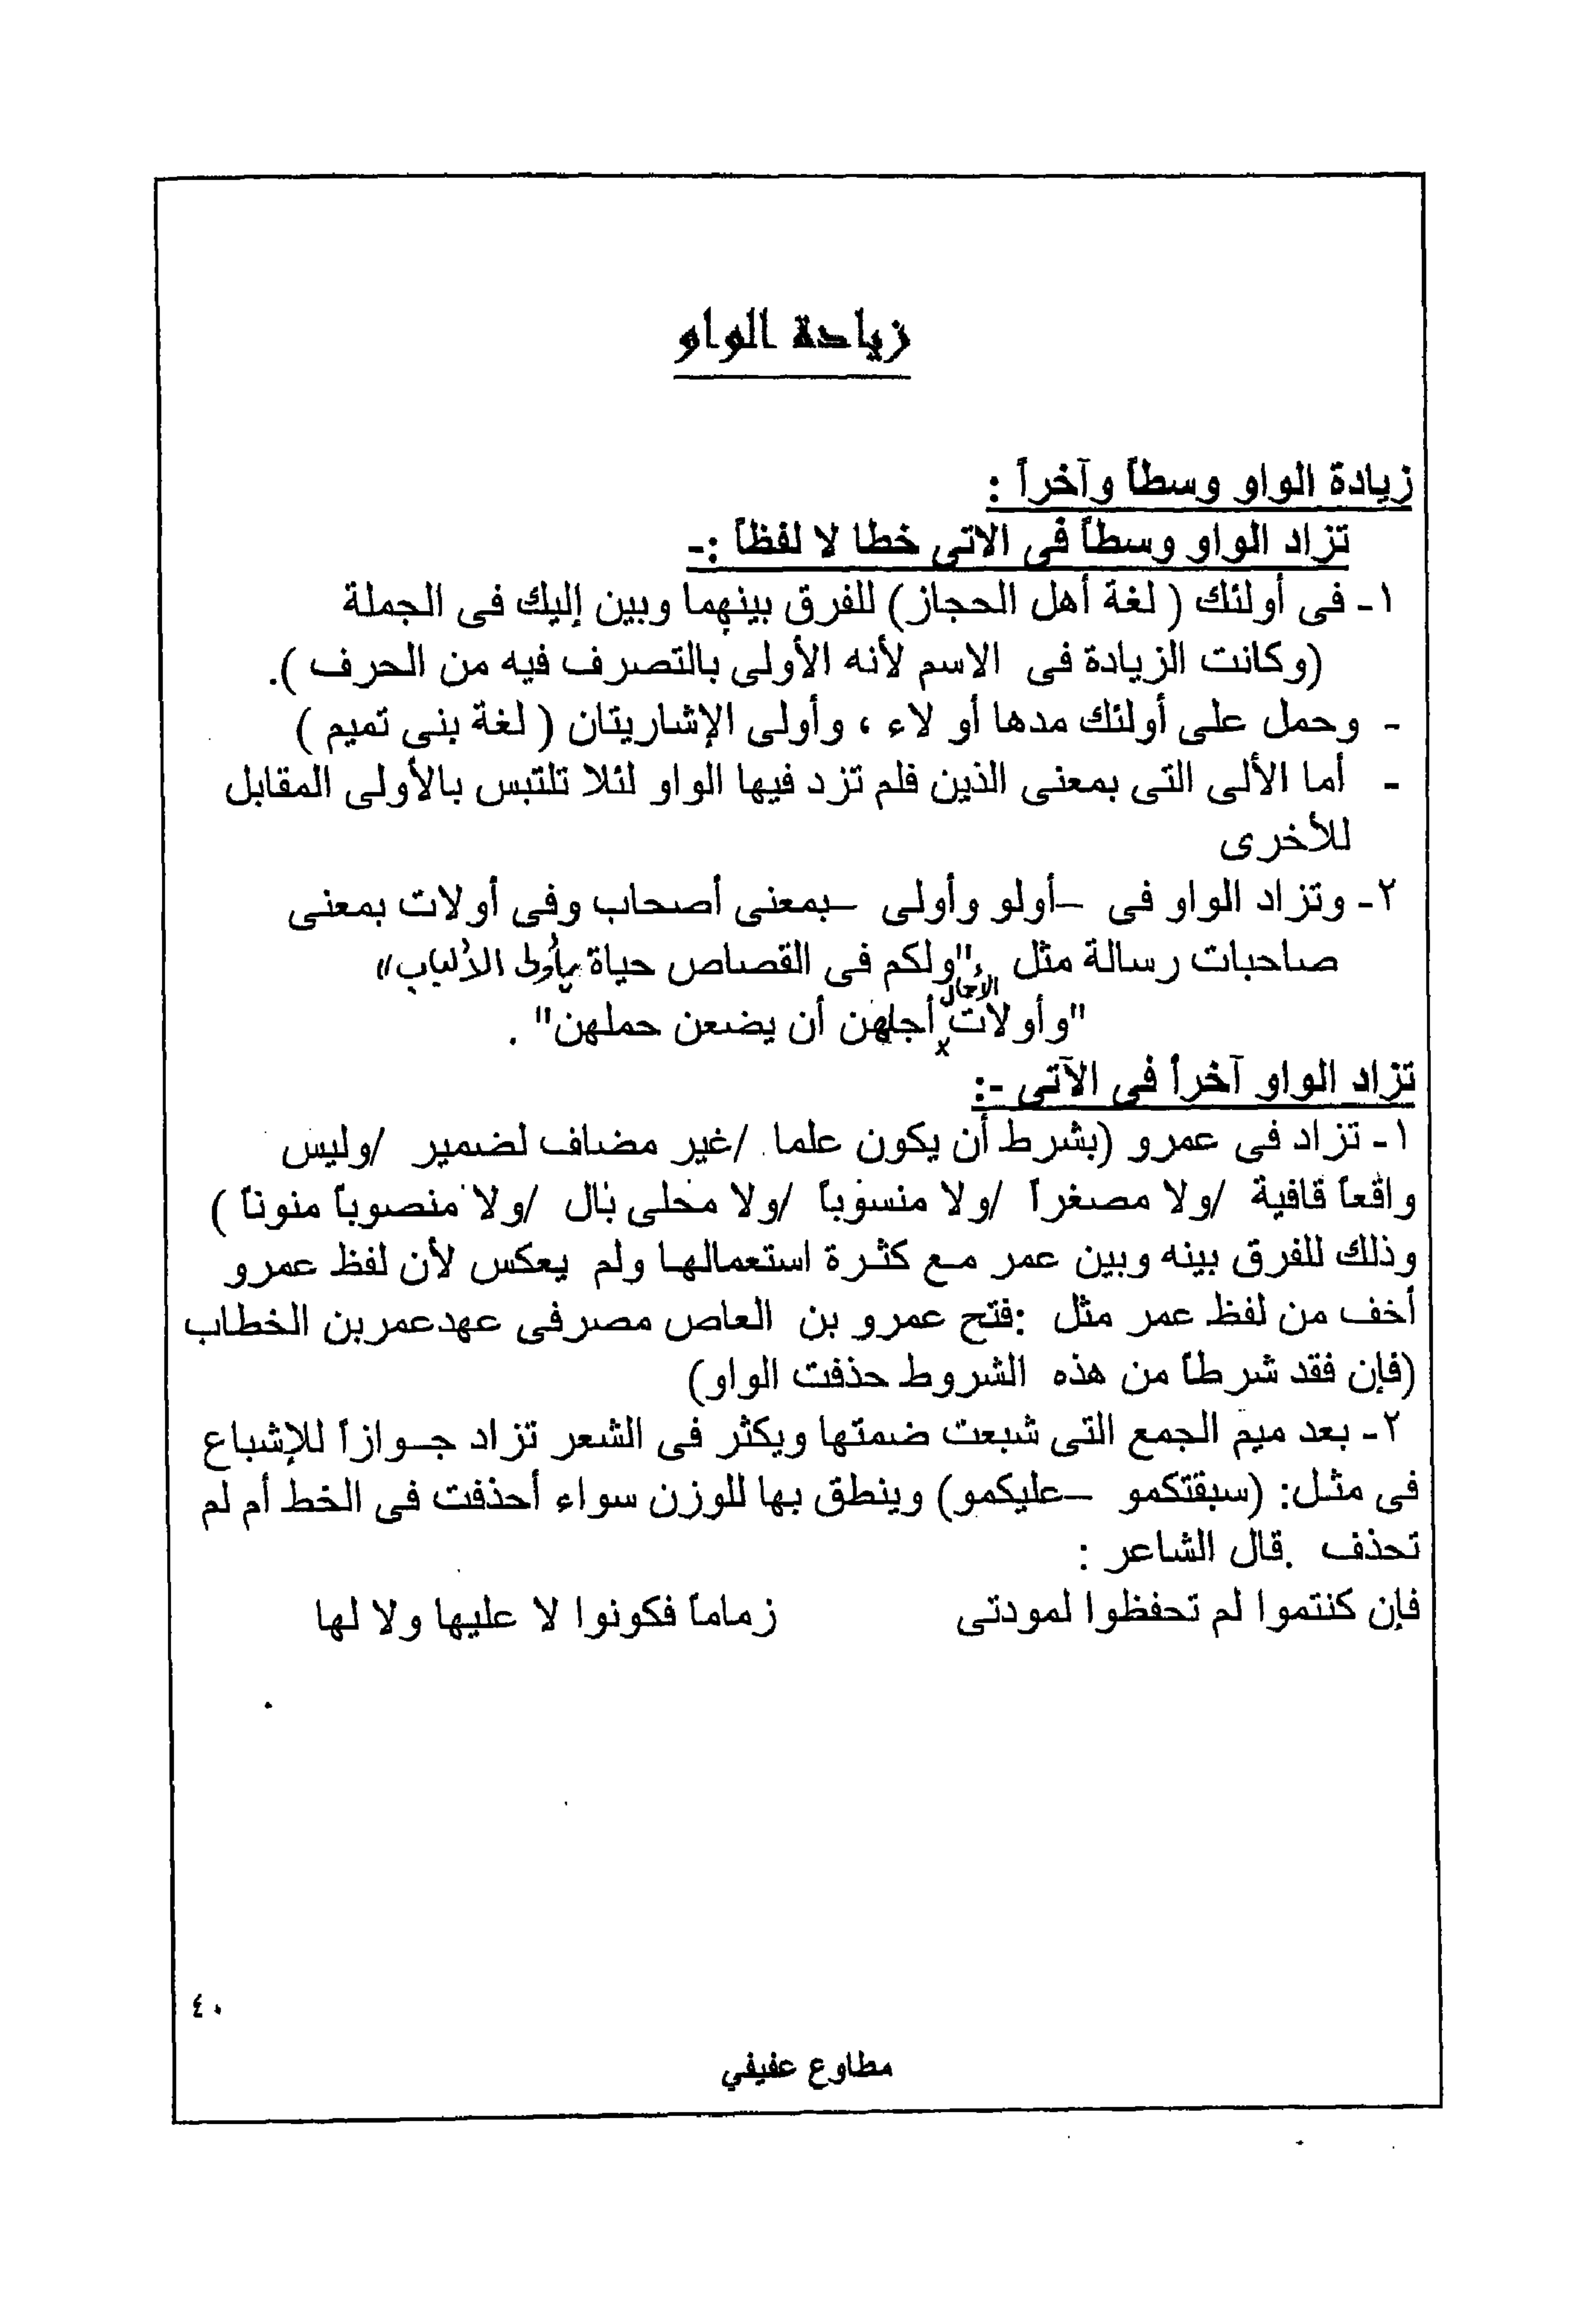 زيادة الواو
زيادة الواو وسطاً وآخراً :
تزاد الواو وسطاً فى الاتى خطا لا لفظاً :-
١- فى أولئك ( لغة أهل الحجاز) للفرق بينهما وبين إليك فى الجملة
(وكانت الزيادة فى الاسم لأنه الأولى بالتصرف فيه من الحرف ).
- وحمل على أولئك مدها أو لاء ، وأولى الإشاريتان ( لغة بنى تميم )
- أما الألى التى بمعنى الذين فلم تزد فيها الواو لئلا تلتبس بالأولى المقابل
للأخرى
٢- وتزاد الواو فى –أولو وأولى –بمعنى أصحاب وفى أولات بمعنى
صاحبات رسالة مثل "ولكم فى القصاص حياة يأولى الألباب"
الأحمال
"وأولات أجلهن أن يضعن حملهن" .
تزاد الواو آخراً فى الآتى -:
١- تزاد فى عمرو (بشرط أن يكون علما /غير مضاف لضمير /وليس
واقعاً قافية /ولا مصغراً /ولا منسوباً /ولا محلى بال /ولا منصوباً منوناً )
وذلك للفرق بينه وبين عمر مع كثرة استعمالها ولم يعكس لأن لفظ عمرو
أخف من لفظ عمر مثل :فتح عمرو بن العاص مصرفى عهدعمربن الخطاب
(فإن فقد شرطاً من هذه الشروط حذفت الواو)
٢- بعد ميم الجمع التى شبعت ضمتها ويكثر فى الشعر تزاد جوازاً للإشباع
فى مثل: (سبقتكمو –عليكمو) وينطق بها للوزن سواء أحذفت فى الخط أم لم
تحذف .قال الشاعر :
فإن كنتموا لم تحفظوا لمودتى زماماً فكونوا لا عليها ولا لها
٤٠
مطاوع عفيفي